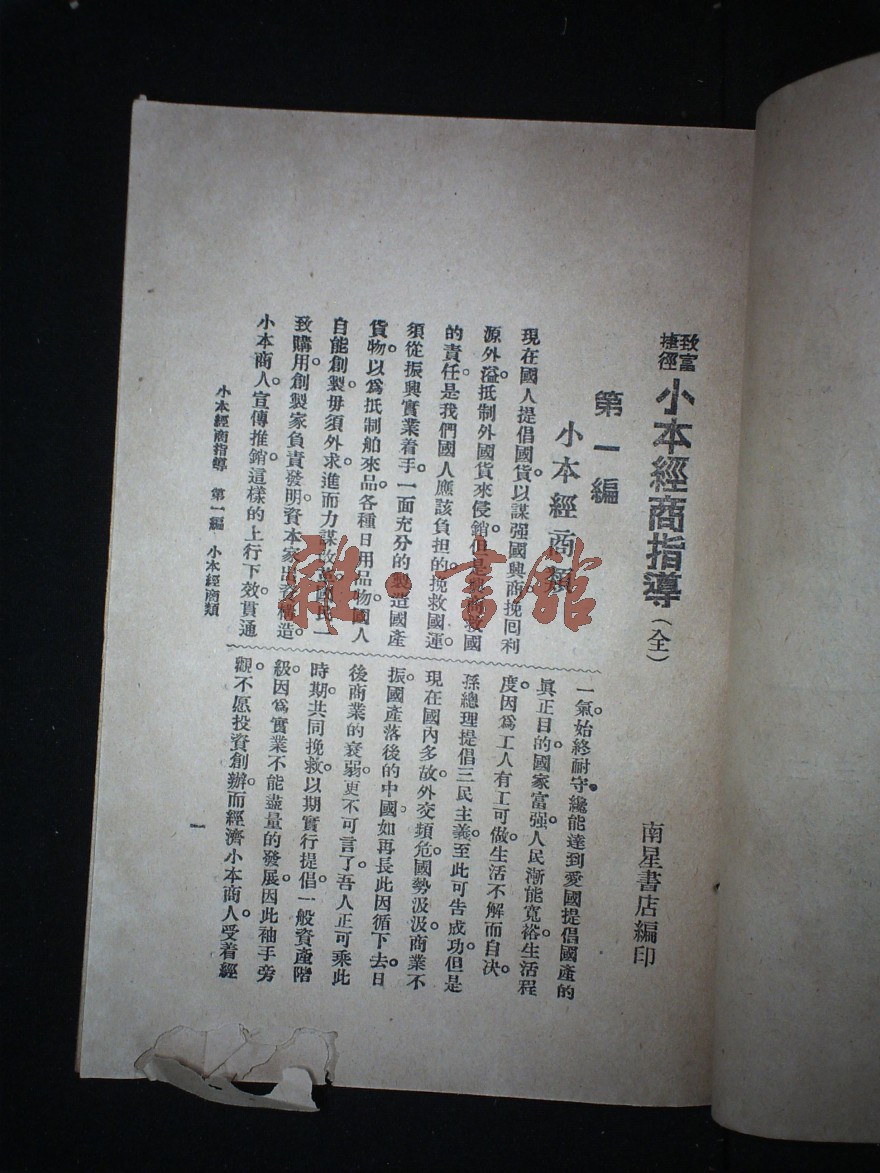 致富捷徑 小本經商指導（全）
南星書店編印
第一編
小本經商類
現在國人提倡國貨。以謀强國興商。挽囘利
源外溢。抵制外國貨來侵銷。但是救國
的責任。是我們國人應該負担的。挽救國運。
須從振興實業着手。一面充分的製造國產
貨物。以爲抵制舶來品。各種日用品物。國人
自能創製。毋須外求。進而力謀國民一
致購用。創製家負責發明。資本家出資構造。
小本商人。宣傳推銷。這樣的上行下效。貫通
一氣。始終耐守。纔能達到愛國提倡國產的
眞正目的。國家富强。人民漸能寬裕生活程
度。因爲工人有工可做。生活不解而自决。
孫總理提倡三民主義。至此可吿成功。但是
現在國內多故。外交頻危。國勢汲汲。商業不
振。國產落後的中國。如再長此因循下去。日
後商業的衰弱。更不可言了。吾人正可乘此
時期。共同挽救。以期實行提倡。一般資產階
級。因爲實業不能盡量的發展。因此袖手旁
觀。不愿投資創辦。而經濟小本商人。受着經
小本經商指導　第一編　小本經商類
一
雜·書館